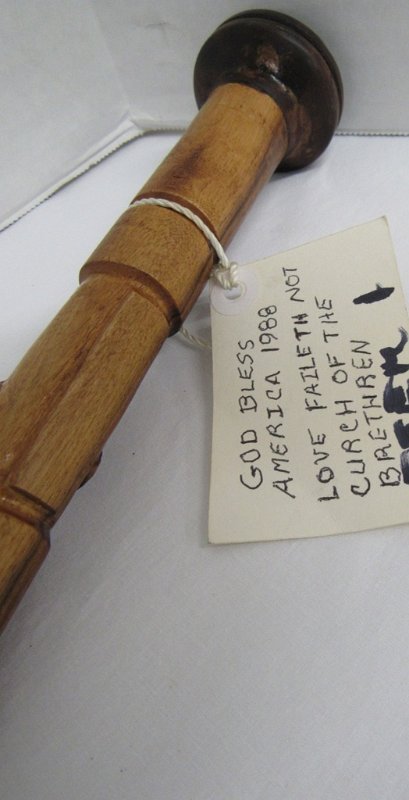 GOD BLESS
AMERICA 1988
LOVE FAILETH NOT
CURCH OF THE
BRETHREN